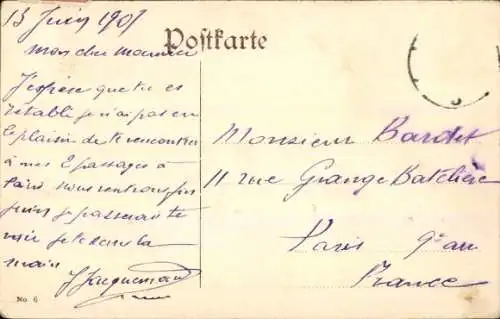 13 Juin 1901
Postkarte
mon cher Maurice
J'espère que tu es
rétabli je n'ai pas eu
le plaisir de te rencontrer
à mes 2 passages à
Paris nous rentrons fin
juin je passerai te
voir je te serre la
main
J Jacquemard
Monsieur Bardet
11 rue Grange Batelière
Paris 9e arr
France
No. 6